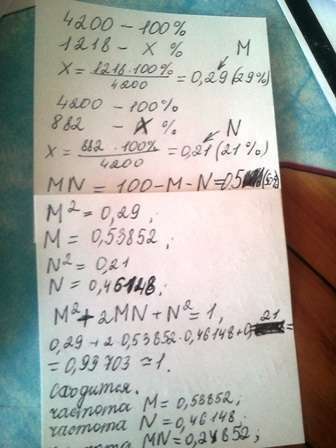 4200 - 100%
1218 - X % M
X = 1218·100% / 4200 = 0,29 (29%)
4200 - 100%
882 - X % N
X = 882·100% / 4200 = 0,21 (21%)
MN = 100 - M - N = 0,5
M² = 0,29;
M = 0,53852;
N² = 0,21
N = 0,46148;
M² + 2MN + N² = 1,
0,29 + 2·0,53852·0,46148 + 0, 21 =
= 0,99703 ≈ 1.
Сходится.
частота M = 0,53852;
частота N = 0,46148;
MN = 0,24852